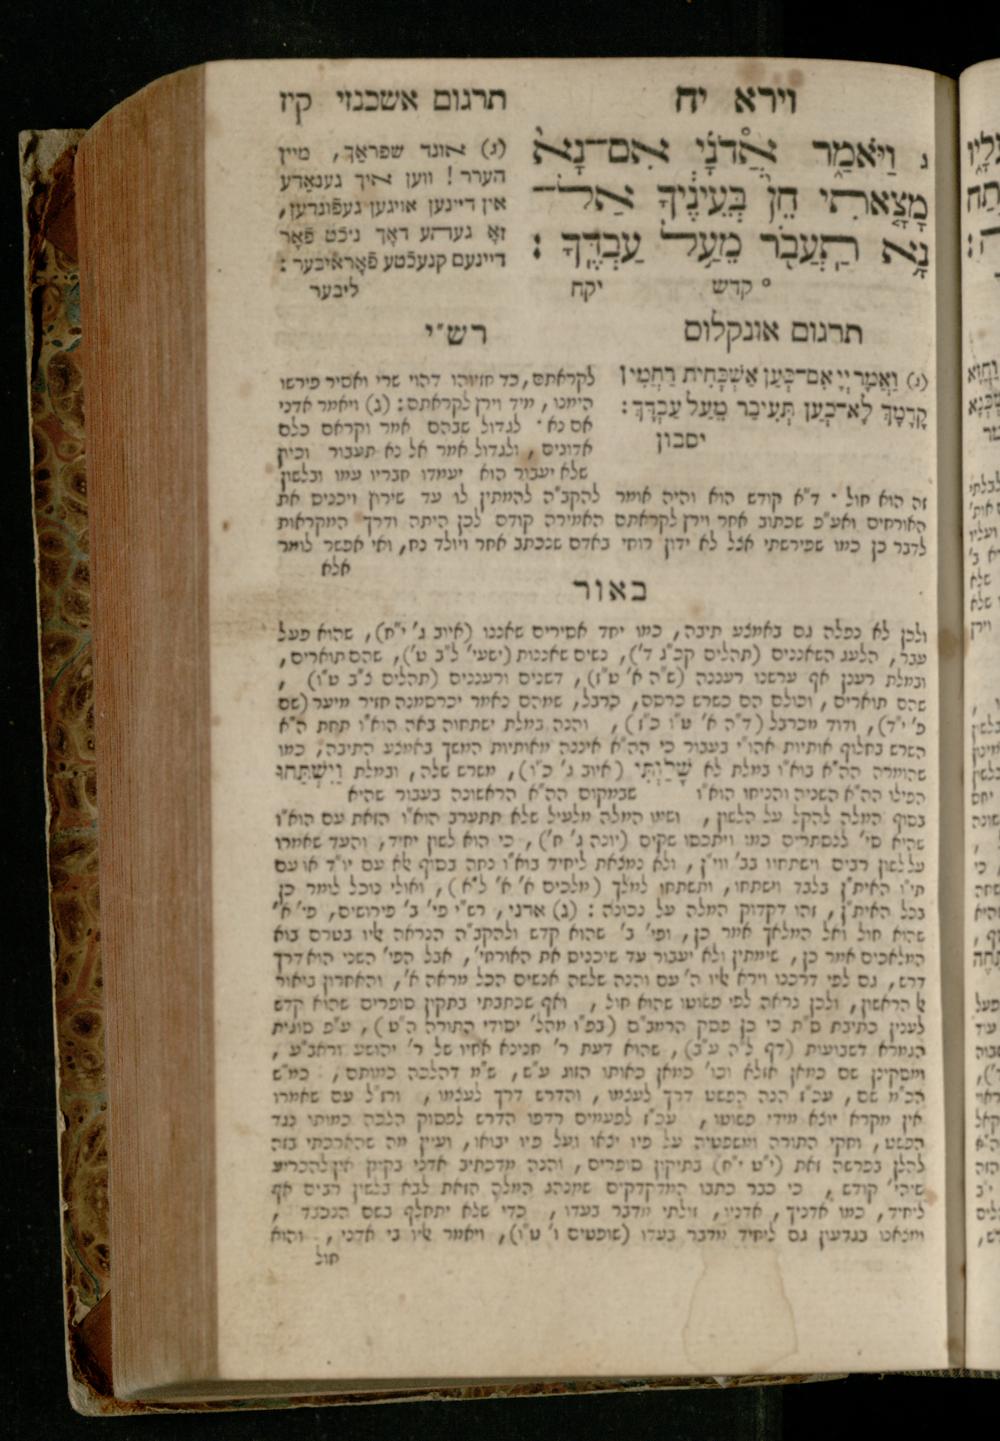 וירא יח
תרגום אשכנזי קיז
ג וַיֹּאמַר אֲדֹנָי אִם־נָא
מָצָאתִי חֵן בְּעֵינֶיךָ אַל־
נָא תַעֲבֹר מֵעַל עַבְדֶּךָ :
° קדש יקח
(ג) אונד שפראַך, מיין
הערר ! ווען איך גענאַדע
אין דיינען אויגען געפֿונדען,
זאָ געהע דאָך ניכֿט פֿאָר
דיינעם קנעכֿטע פֿאָראיבער :
ליבער
תרגום אונקלוס
(ג) וַאֲמַר יְיָ אִם־כְּעַן אַשְׁכָּחִית רַחֲמִין
קֳדָמָךְ לָא־כְעַן תְּעִיבַר מֵעַל עַבְדָּךְ :
יסבון
רש״י
לקראתם, כד חזיוהו דהוי שרי ואסיר פירשו
הימנו, מיד וירן לקראתם : (ג) ויאמר אדני
אם נא · לגדול שבהם אמר וקראם כלם
אדונים, ולגדול אמר אל נא תעבור וכיון
שלא יעבור הוא יעמדו חבריו עמו ובלשון
זה הוא חול · ד״א קודש הוא והיה אומר להקב״ה להמתין לו עד שירוץ ויכניס את
האורחים ואע״פ שכתוב אחר וירן לקראתם האמירה קודם לכן היתה ודרך המקראות
לדבר כן כמו שפירשתי אצל לא ידון רוחי באדם שנכתב אחר ויולד נח, ואי אפשר לומר
אלא
באור
ולכן לא נפלה גם באמצע תיבה, כמו יחד אסירים שאננו (איוב ג׳ י״ח), שהוא פעל
עבר, הלעג השאננים (תהלים קכ״ג ד׳), נשים שאננות (ישעי׳ ל״ב ט׳), שהם תוארים,
ובמלת רענן אף ערשנו רעננה (ש״ה א׳ ט״ז), דשנים ורעננים (תהלים צ״ב ט״ו) ,
שהם תוארים, וכולם הם כשרש כרסם, כרבל, שמהם נאמר יכרסמנה חזיר מיער (שם
פ׳ י״ד), ודוד מכרבל (ד״ה א׳ ט״ו כ״ז), והנה במלת ישתחוה באה הוא״ו תחת ה״א
השרש בחלוף אותיות אהו״י בעבור כי הה״א איננה מאותיות המשך באמצע התיבה, כמו
שהומרה הה״א בוא״ו במלת לא שָׁלַוְתִּי (איוב ג׳ כ״ו), משרש שלה, ובמלת וַיִּשְׁתַּחוּ
הפילו הה״א השניה והניחו הוא״ו שבמקום הה״א הראשונה בעבור שהיא
בסוף המלה להקל על הלשון, ושמו המלה מלעיל שלא תתערב הוא״ו הזאת עם הוא״ו
שהיא סי׳ לנסתרים כמו ויתכסו שקים (יונה ג׳ ח׳), כי הוא לשון יחיד, והעד שאמרו
על לשון רבים וישתחוו בב׳ ווי״ן, ולא נמצאת ליחיד בוא״ו נחה בסוף אלא עם יו״ד או עם
תי״ו האית״ן בלבד וישתחו, ותשתחו למלך (מלכים א׳ א׳ ל״א), ואולי נוכל לומר כן
בכל האית״ן, זהו דקדוק המלה על נכונה : (ג) אדני, רש״י פי׳ ב׳ פירושים, פי׳ א׳
שהוא חול ואל המלאך אמר כן, ופי׳ ב׳ שהוא קדש ולהקב״ה הנראה אליו בטרם בוא
המלאכים אמר כן, שימתין ולא יעבור עד שיכניס את האורחי׳, אבל הפי׳ השני הוא דרך
דרש, גם לפי דרכנו וירא אליו ה׳ עם והנה שלשה אנשים הכל מראה א׳, והאחרון ביאור
אל הראשון, ולכן נראה לפי פשוטו שהוא חול, ואף שכתבתי בתקון סופרים שהוא קדש
לענין כתיבת ס״ת כי כן פסק הרמב״ם (בפ״ו מהל׳ יסודי התורה ה״ט), ע״פ סוגית
הגמרא דשבועות (דף ל״ה ע״ב), שהוא דעת ר׳ חנינא אחיו של ר׳ יהושע וראב״ע,
ומסקינן שם כמאן אזלא וכו׳ כמאן כאותו הזוג ע״ש, ש״מ דהלכה כמותם, כמ״ש
הכ״מ שם, עכ״ז הנה הפשט דרך לעצמו, והדרש דרך לעצמו, ורז״ל עם שאמרו
אין מקרא יוצא מידי פשוטו, עכ״ז לפעמים רדפו הדרש לפסוק הלכה כמותו נגד
הפשט, וחקי התורה ומשפטיה על פיו יצאו ועל פיו יבואו, ועיין מה שהארכתי בזה
להלן בפרשה זאת (י״ט י״ח) בתיקון סופרים, והנה מדכתיב אדני בקמץ אין להכריע
שיהי׳ קודש, כי כבר כתבו המדקדקים שמנהג המלה הזאת לבא בלשון רבים אף
ליחיד, כמו אדניך, אדניו, זולתי מדבר בעדו, כדי שלא יתחלף בשם הנכבד ,
ומצאנו בגדעון גם ליחיד מדבר בעדו (שופטים ו׳ ט״ו), ויאמר אליו בי אדני, והוא
חול